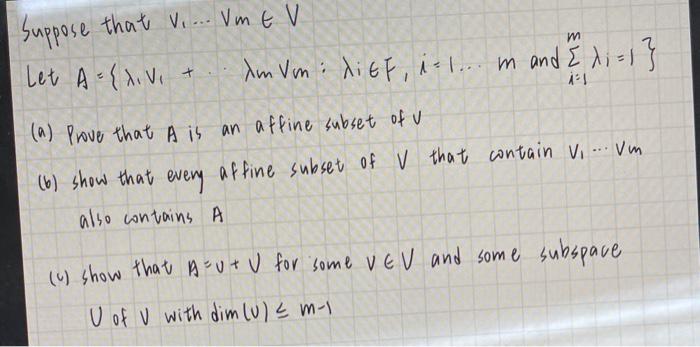 Suppose that V₁ ... Vm ∈ V
Let A = {λ₁V₁ + ·· λm Vm : λi ∈ F, i = 1... m and ∑_{i=1}^{m} λi = 1}
(a) Prove that A is an affine subset of V
(b) show that every affine subset of V that contain V₁ ... Vm
also contains A
(c) show that A = v + U for some v ∈ V and some subspace
U of V with dim(U) ≤ m-1